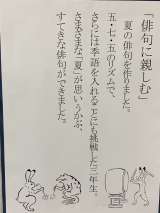 「俳句に親しむ」
夏の俳句を作りました。
五・七・五のリズムで、
さらには季語を入れることにも挑戦した三年生。
さまざまな「夏」が思いうかぶ、
すてきな俳句ができました。